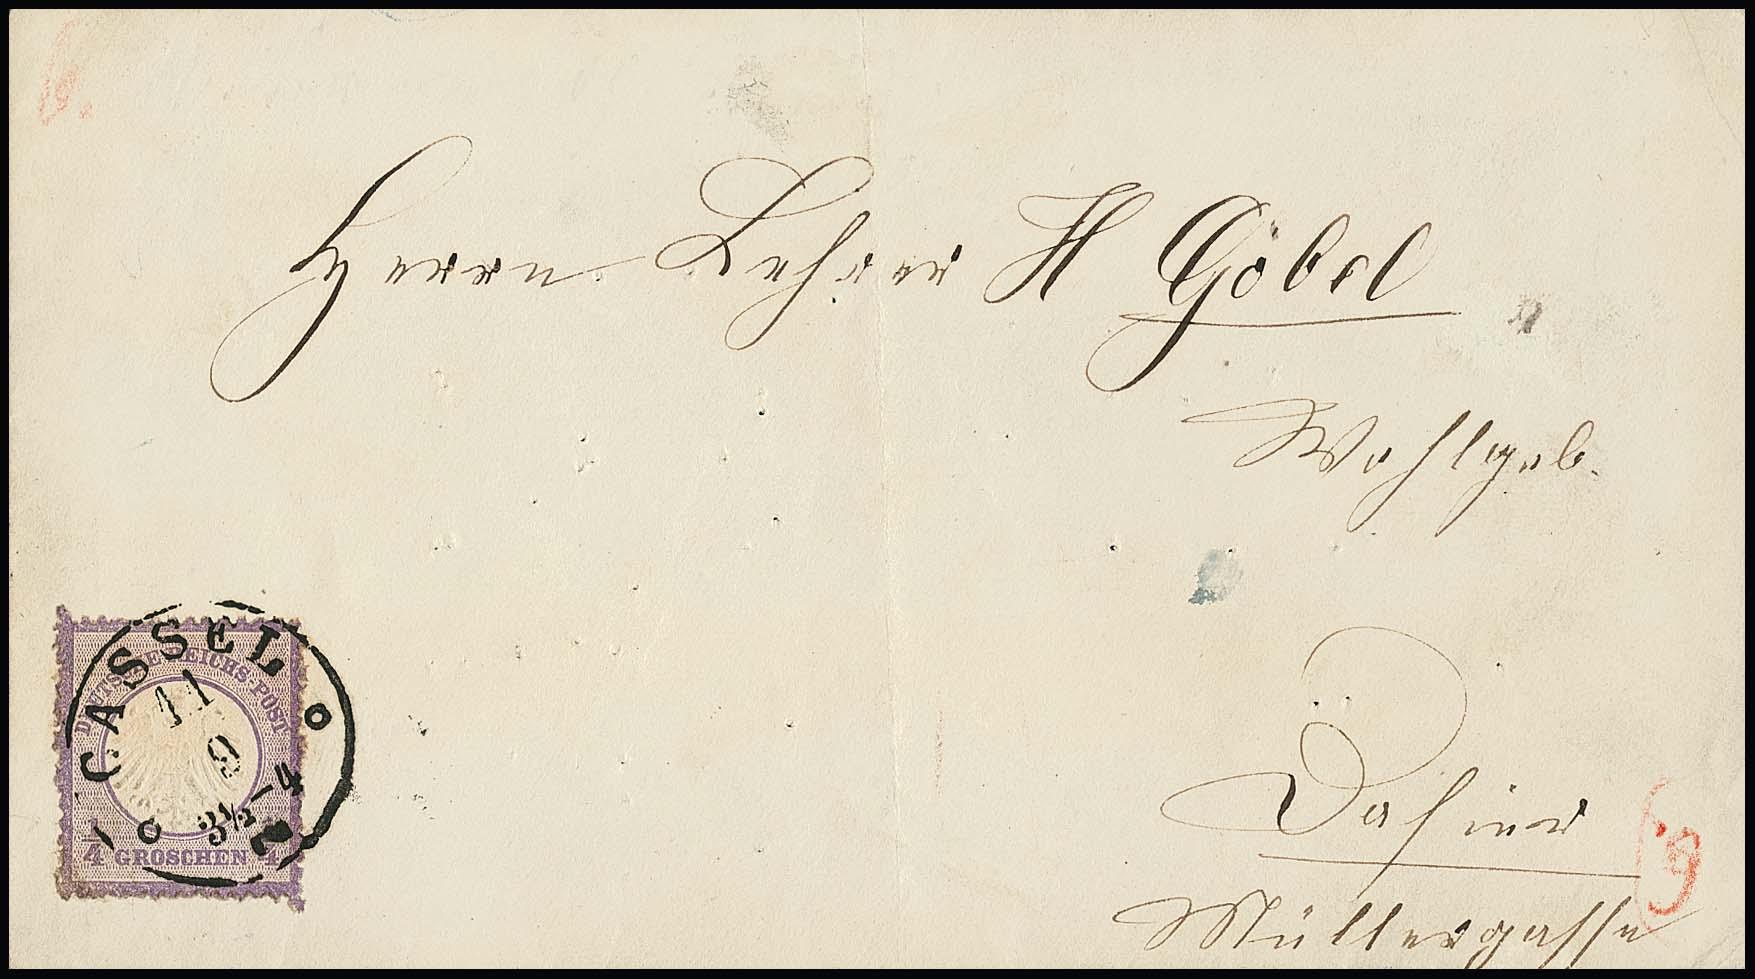 Herrn Lehrer H Göbel
Wohlgeb.
Dahier
Müllergasse
CASSEL
11
9
3½-4
DEUTSCHE REICHS-POST
1/4 GROSCHEN 1/4